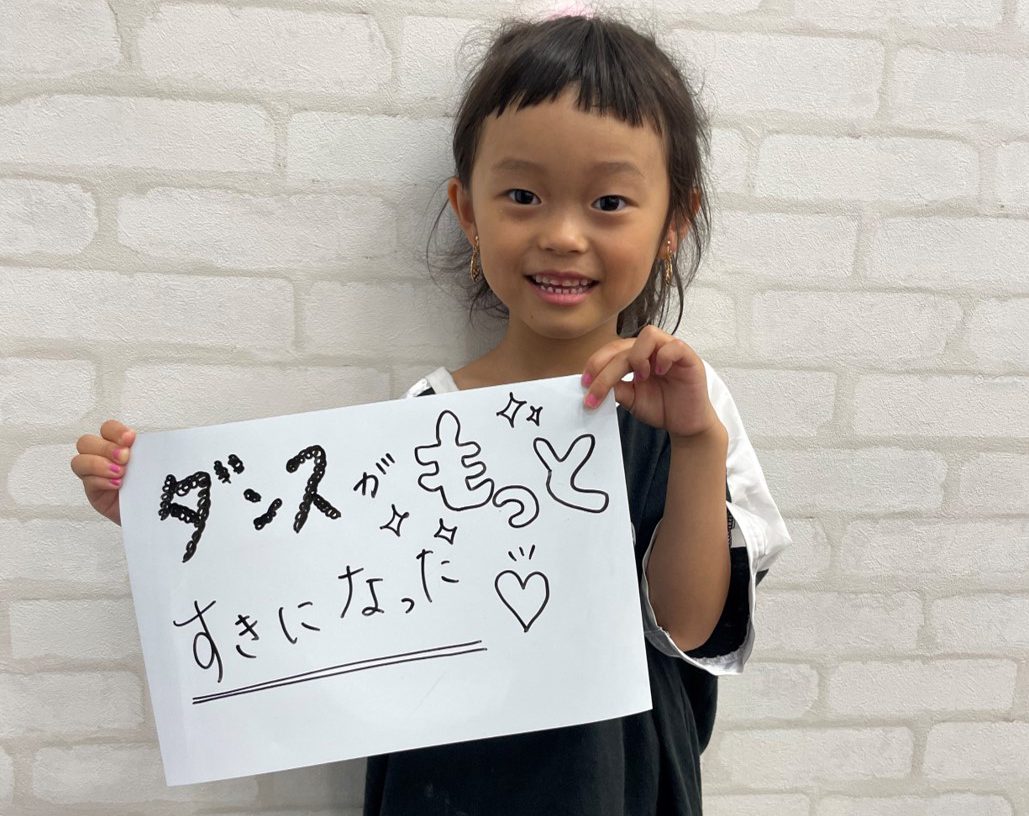 ダンスがもっと
すきになった